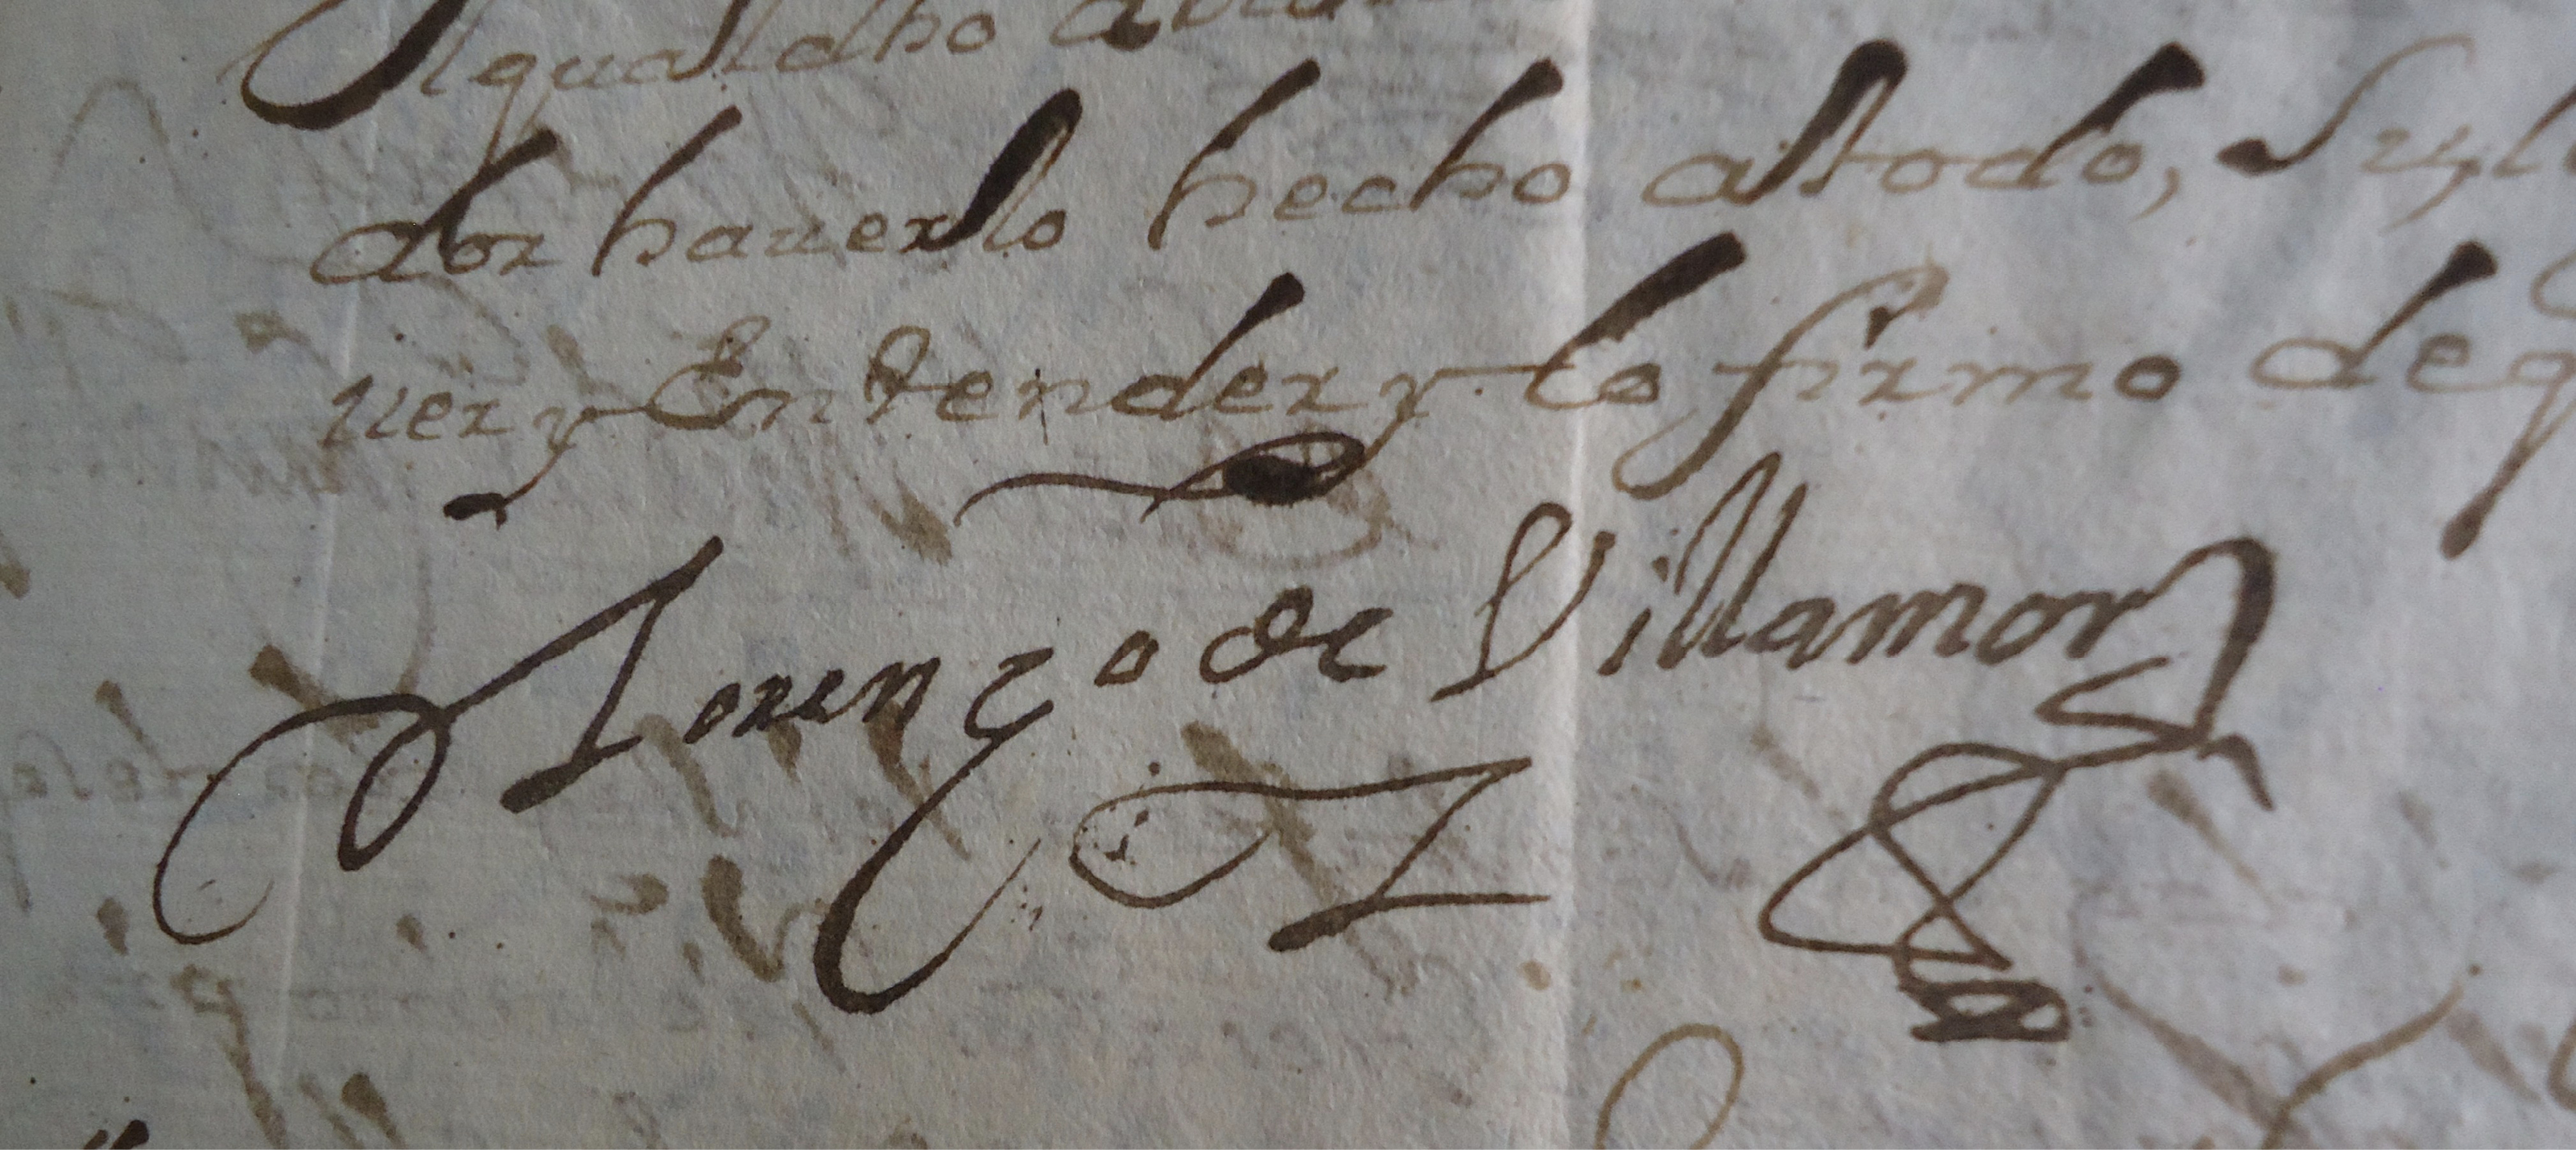 qual dho
dor hauerlo hecho a todo,
uer y Entender y lo firmo de
Lorenço de Villamor